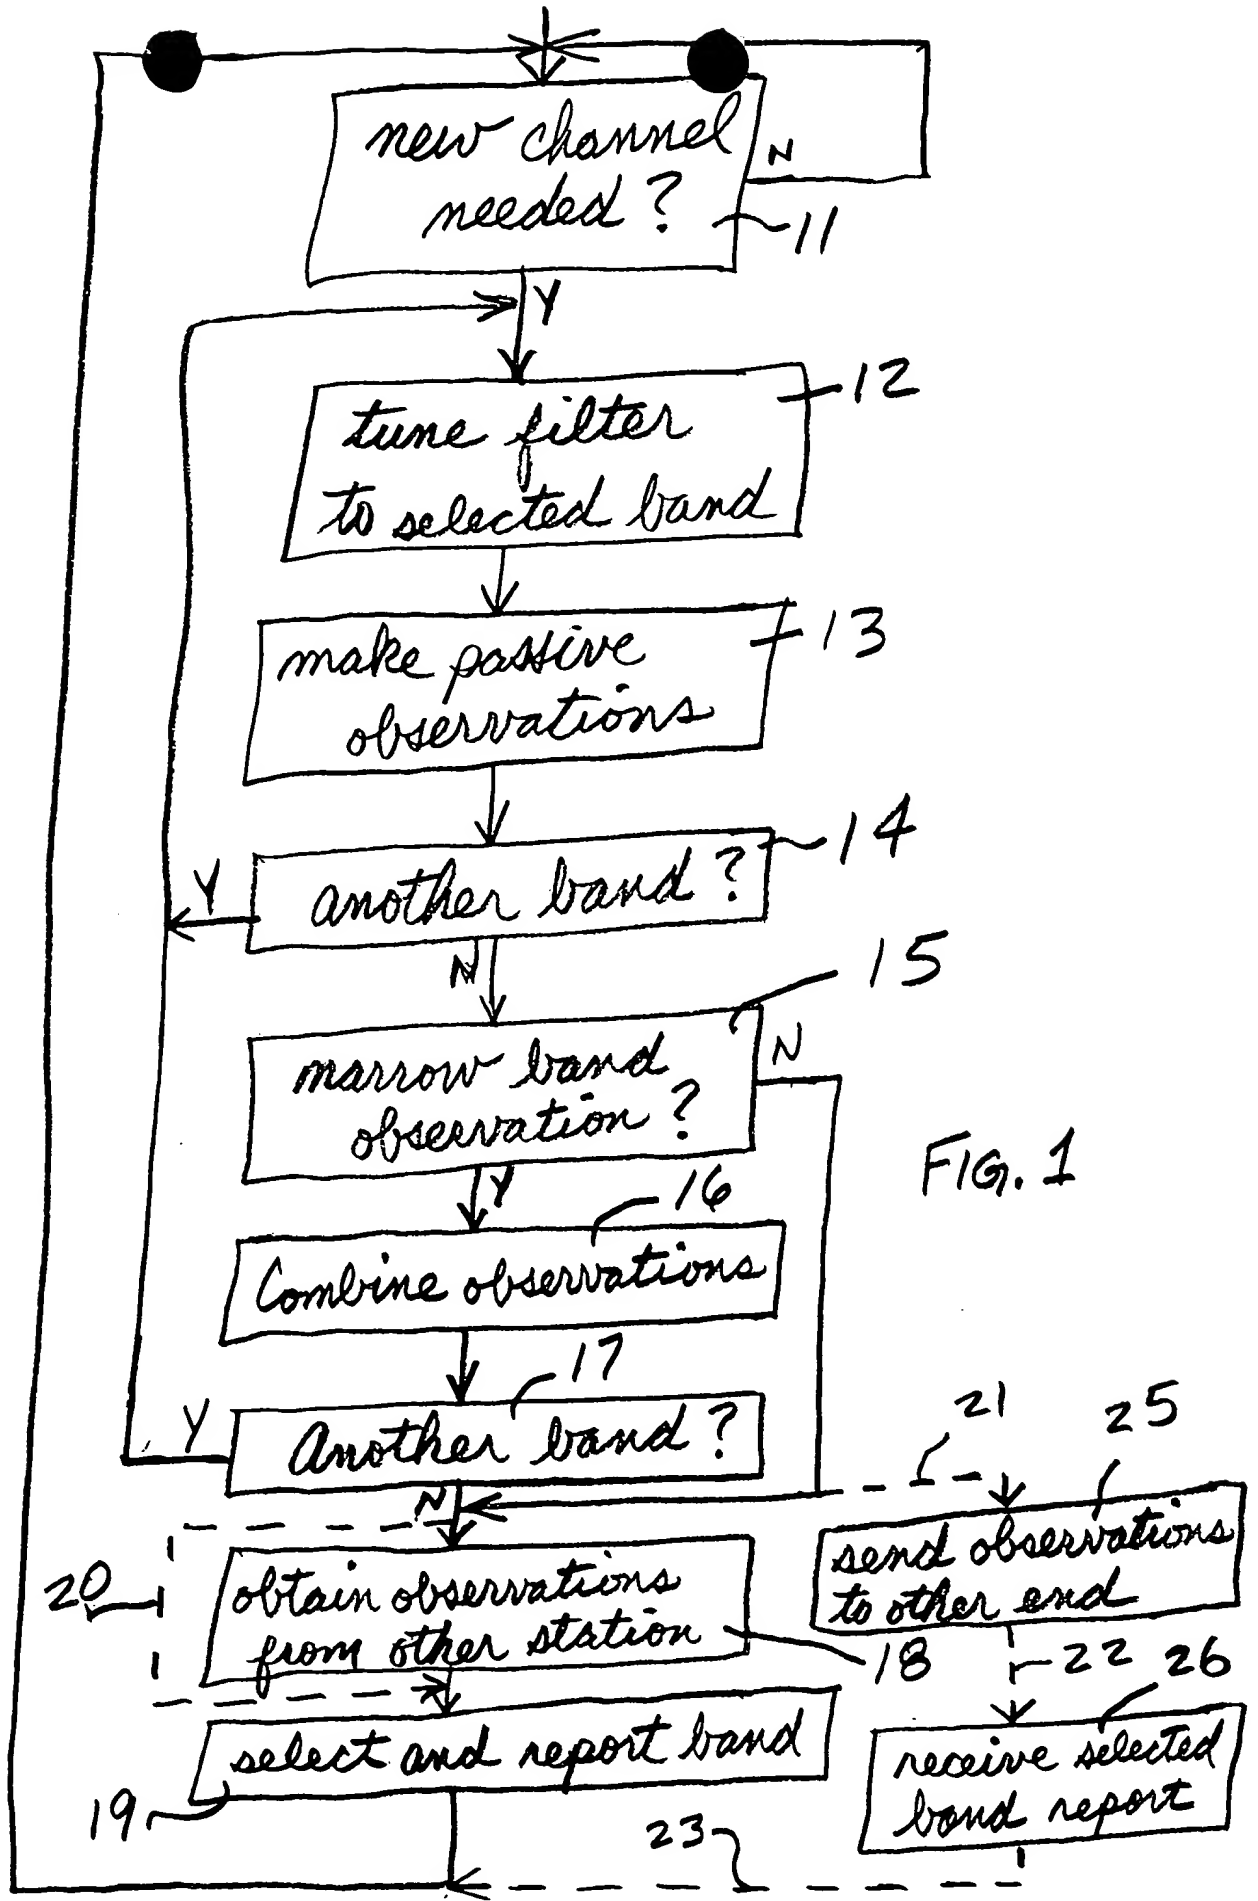 new channel
needed?
N
11
Y
12
tune filter
to selected band
13
make passive
observations
14
another band?
Y
N
15
narrow band
observation?
N
Y
FIG. 1
16
Combine observations
17
Another band?
Y
N
21
25
send observations
to other end
20
obtain observations
from other station
18
22
26
select and report band
19
receive selected
band report
23